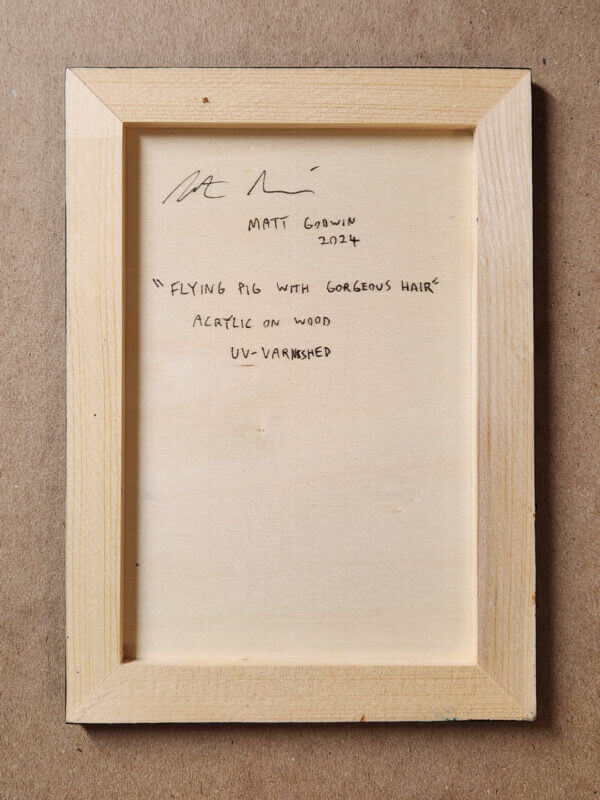 MATT GODWIN
2024
"FLYING PIG WITH GORGEOUS HAIR"
ACRYLIC ON WOOD
UV-VARNISHED